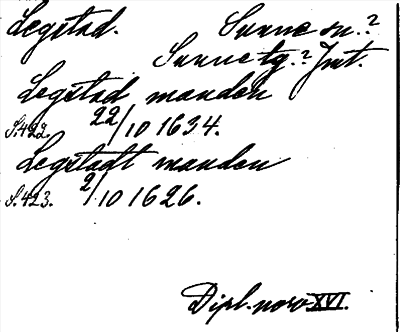 Legstad. Sunne sn.?
Sunne tg.? Jmt.
Legstad, manden
S.422. 22/10 1634.
Legstadt manden
S.423. 2/10 1626.
Dipl. norv XVI.